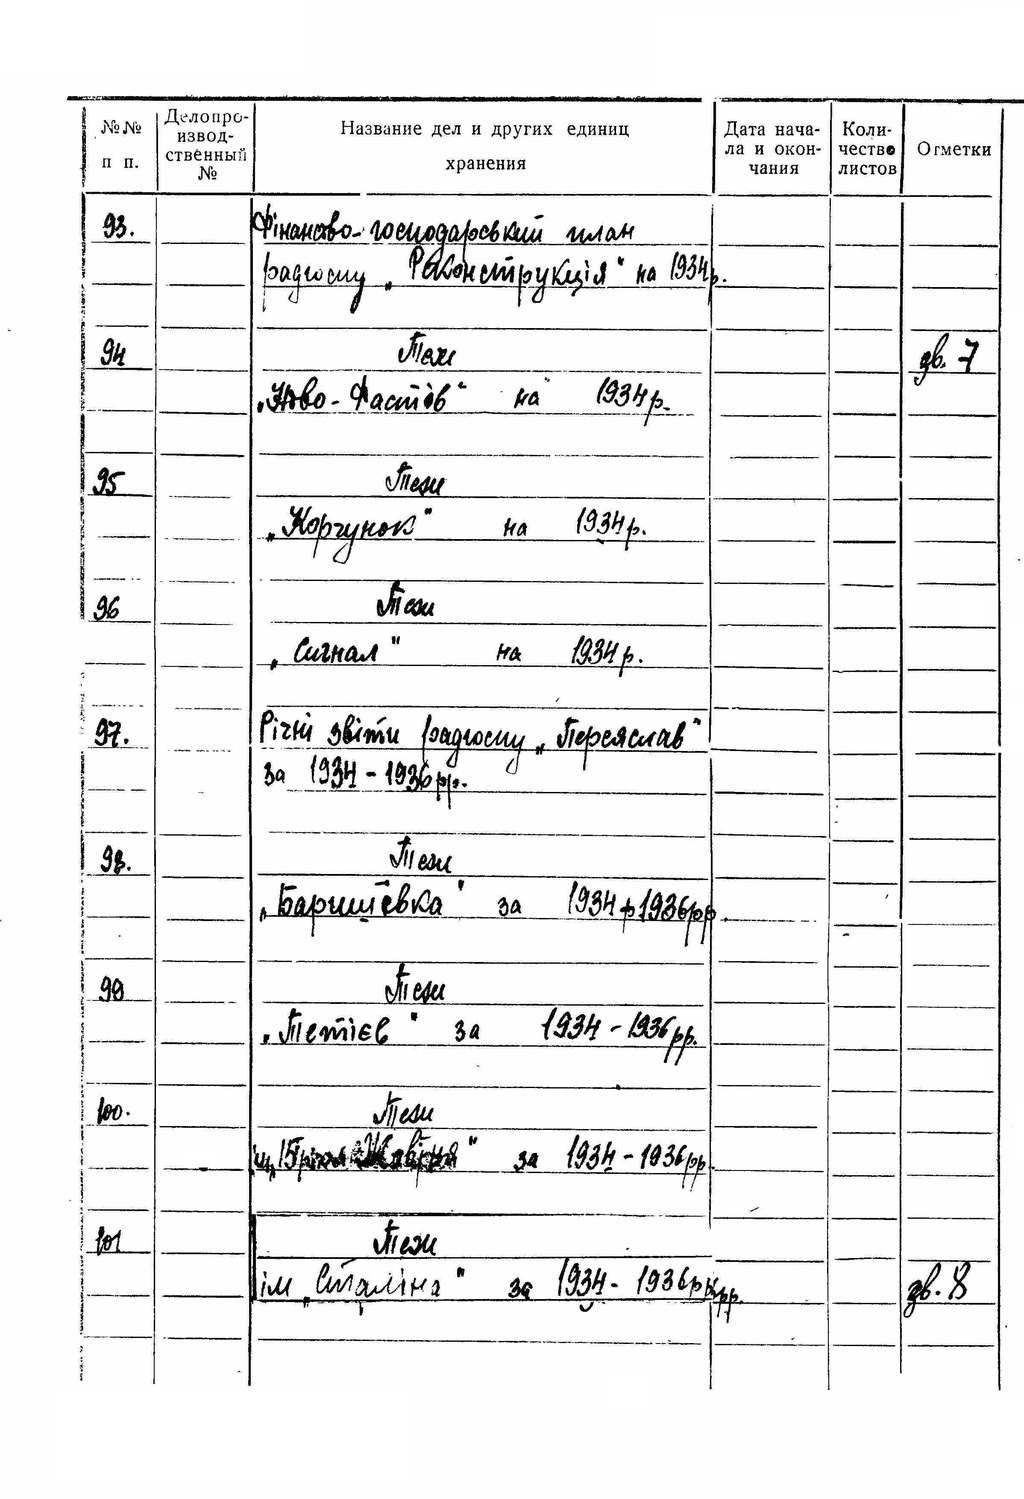 №№ п п.
Делопроизводственный №
Название дел и других единиц хранения
Дата начала и окончания
Количество листов
Отметки
93. Фінансово-господарський план
радгоспу „Реконструкція" на 1934р.
94 Теж зв. 7
„Ново-Фастів" на 1934р.
95 Теж
„Коргунок" на 1934р.
96 Теж
„Сигнал" на 1934р.
97. Річні звіти радгоспу „Переяслав"
за 1934-1936рр.
98. Теж
„Баришевка" за 1934р 1936рр.
99 Теж
„Тетієв" за 1934-1936рр.
100. Теж
за 1934-1936рр.
101 Теж
ім „Сталіна" за 1934-1936рр. зв. 8